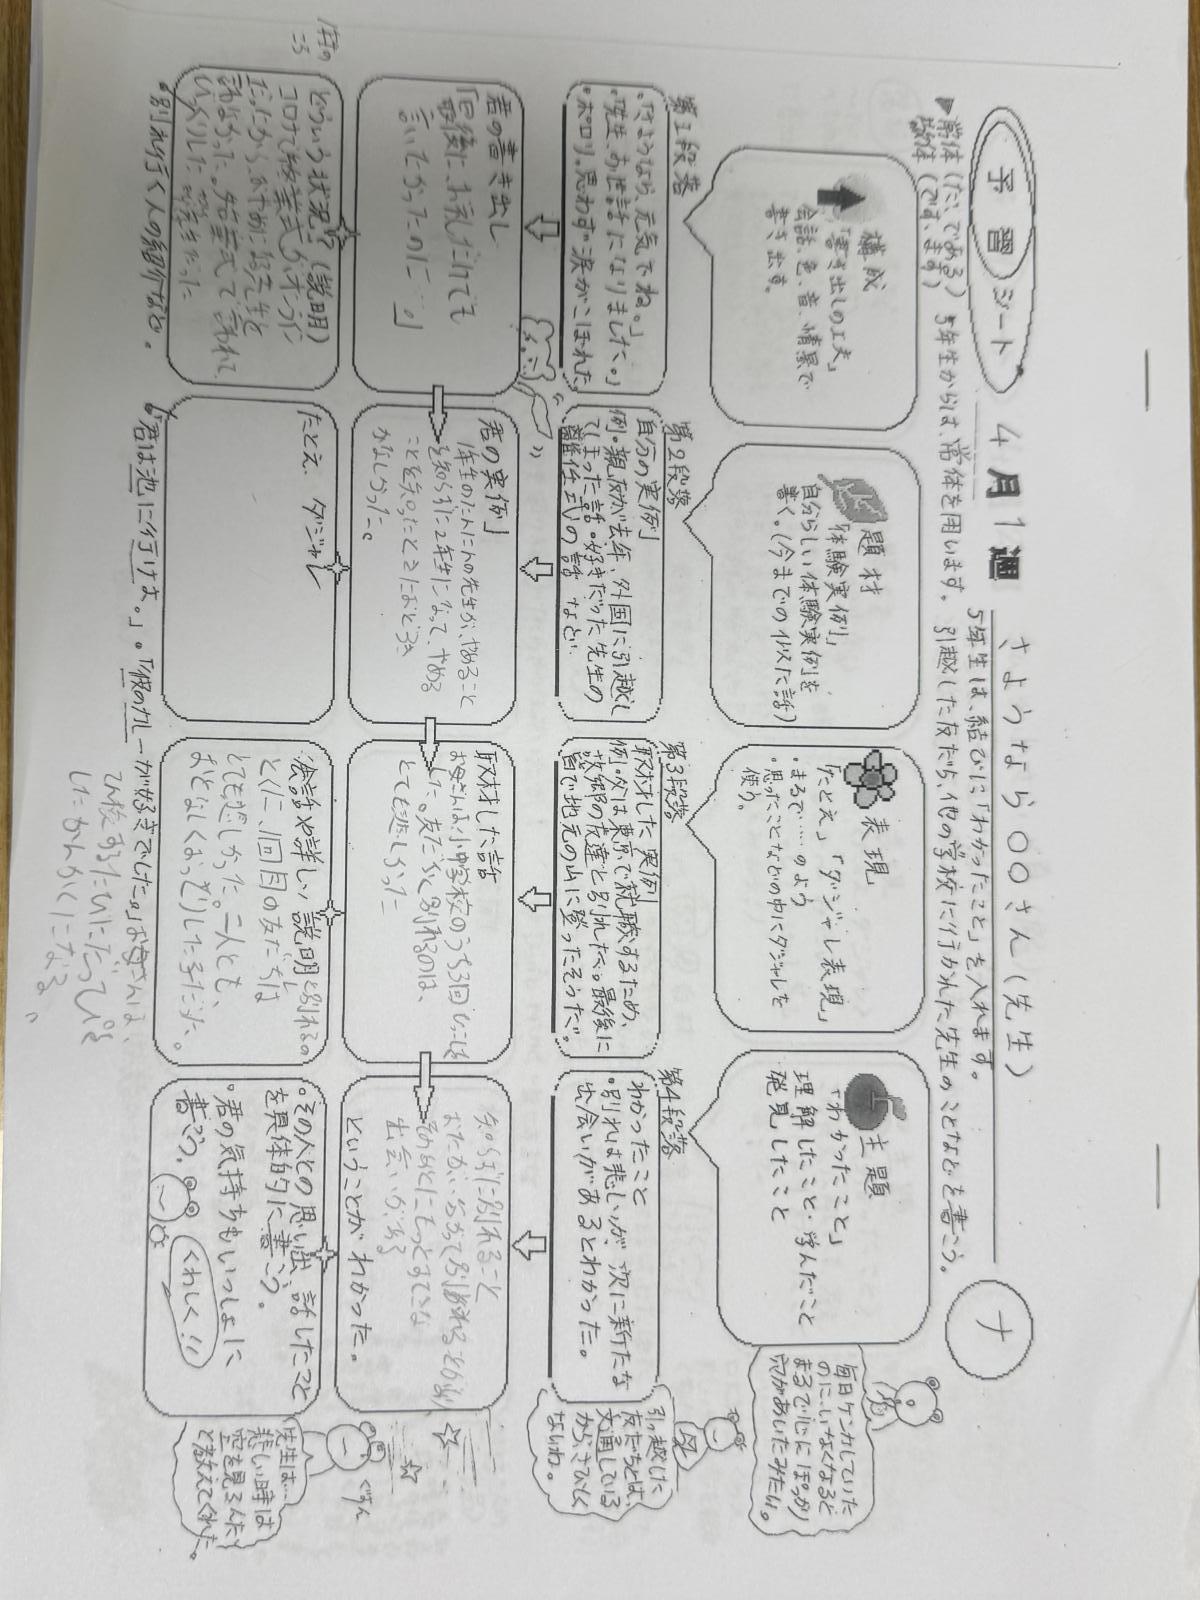 予習シート
4月1週
さようなら○○さん(先生)
ナ
▼常体(だ、である)5年生からは、常体を用います。
敬体(です、ます)
5年生は、結びに「わかったこと」を入れます。
引越した友だち、他の学校に行かれた先生のことなどを書こう。
構成
「書き出しの工夫」
会話、色、音、情景で
書き出す。
題材
「体験実例」
自分らしい体験実例を
書く。(今までの似た話)
表現
「たとえ」「ダジャレ表現」
・まるで……のよう
・思ったことなどの中にダジャレを
使う。
主題
「わかったこと」
理解したこと・学んだこと
発見したこと
毎日ケンカしていた
のに、いなくなると
まるで心にぽっかり
穴があいたみたい。
第1段落
・「さようなら、元気でね。」
・「先生、お世話になりました。」
・ポロリ。思わず涙がこぼれた。
第2段落
自分の実例
例・親友が去年、外国に引越し
てしまった話・好きだった先生の
離任式の話 など
第3段落
取材した実例
例・父は東京で就職するため、
故郷の友達と別れたべ。最後に
皆で地元の山に登ったそうだ。
第4段落
わかったこと
・別れは悲しいが、次に新たな
出会いがあるとわかった。
引っ越した
友だちとは、
文通している
から、さびしく
ないわ。
君の書き出し
「最後に、お礼だけでも
言いたかったのに…。」
君の実例
1年生のたんにんの先生が、やめること
を知らずに2年生になって、やめる
ことを知ったときにおどろき
かなしかった。
取材した話
お母さんは小中学校のうち3回ひっこし
した。友だちと別れるのは、
とても悲しかった
知らずに別れること
おたがい分かって別れることが
そのあとにもっとすてきな
出会いがある
ということがわかった。
ぐすん
1年の
ころ
どういう状況?(説明)
コロナで終業式がオンライン
だったから、
始業式で言われて
びっくりした
・別れ行く人の紹介など。
たとえ、ダジャレ
・「君は池に行けよ。」・「假のカレーが好きでした。」
会話や詳しい説明
とくに1回目の友だちと別れるの
とても悲しかった。二人とも、
おとなしくおっとりした子だった。
お母さんは、
てん校するたびにだっぴを
したかんかくになる。
・その人との思い出、話したこと
を具体的に書こう。
・君の気持ちもいっしょに
書こう。
くわしく!!
先生は…
悲しい時は
空を見るんだ
と教えてくれた。